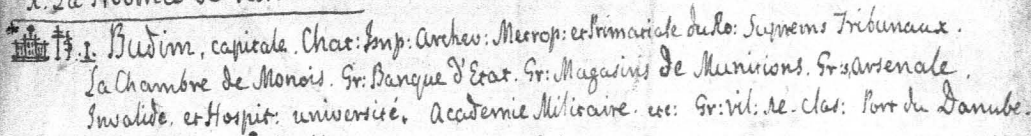 1. Budim, capitale. Chat: Imp: Archev: Metrop: et Primatiale du Ro: Suprems Tribunaux.
La Chambre de Monois. Gr: Banque d'Etat. Gr: Magasins de Munitions. Gr: Arsenale.
Invalide. et Hospit: université. Academie Militaire. etc: Gr: vil: Re. clas: Port du Danube